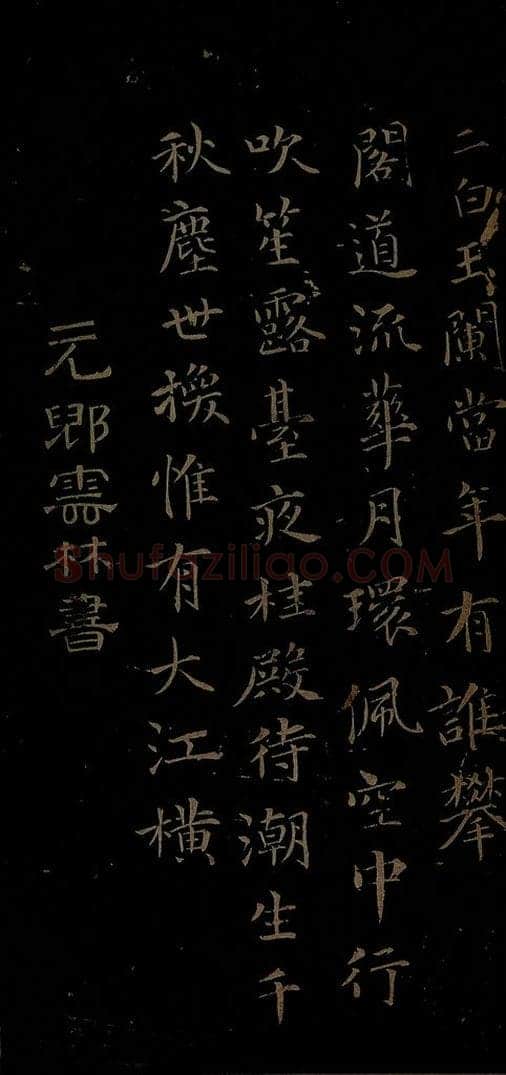 二白玉闌當年有誰攀
閣道流華月環佩空中行
吹笙露臺夜桂殿待潮生千
秋塵世換惟有大江橫
元鄉雲林書
Shufaziliao.COM